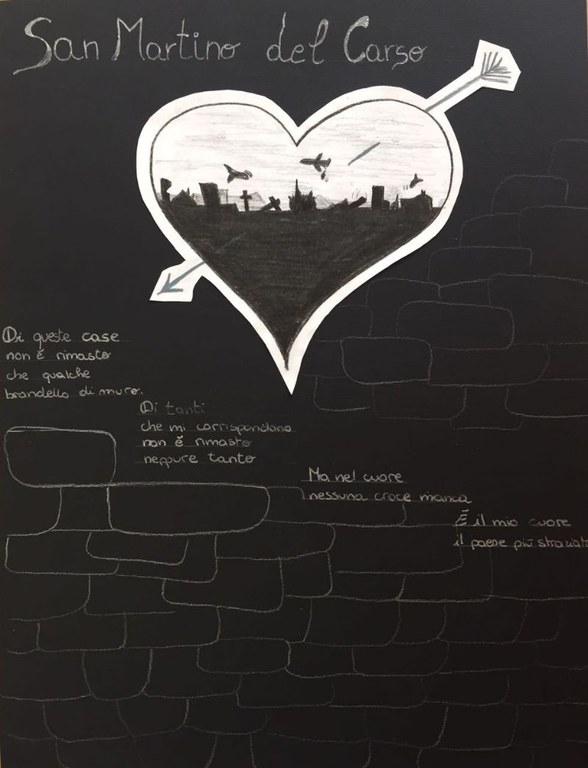 San Martino del Carso
Di queste case
non è rimasto
che qualche
brandello di muro.
Di tanti
che mi corrispondano
non è rimasto
neppure tanto
Ma nel cuore
nessuna croce manca
È il mio cuore
il paese più straziato